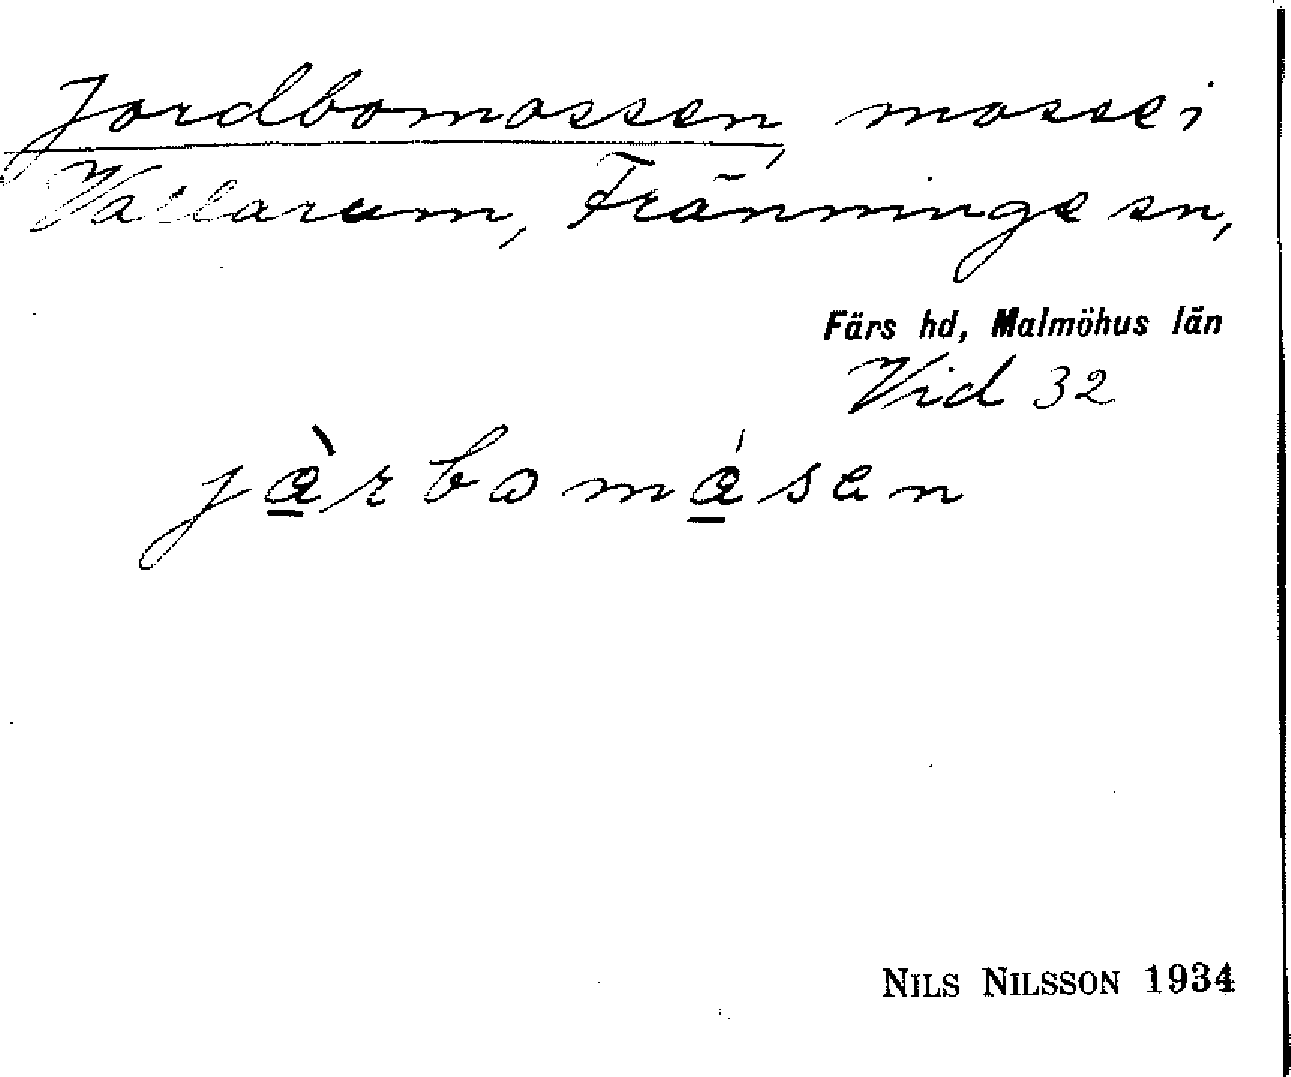 Jordbomossen, mosse i
Vallarum, Fränninge sn,
Färs hd, Malmöhus län
Vid 32
jàrbomásen
NILS NILSSON 1934